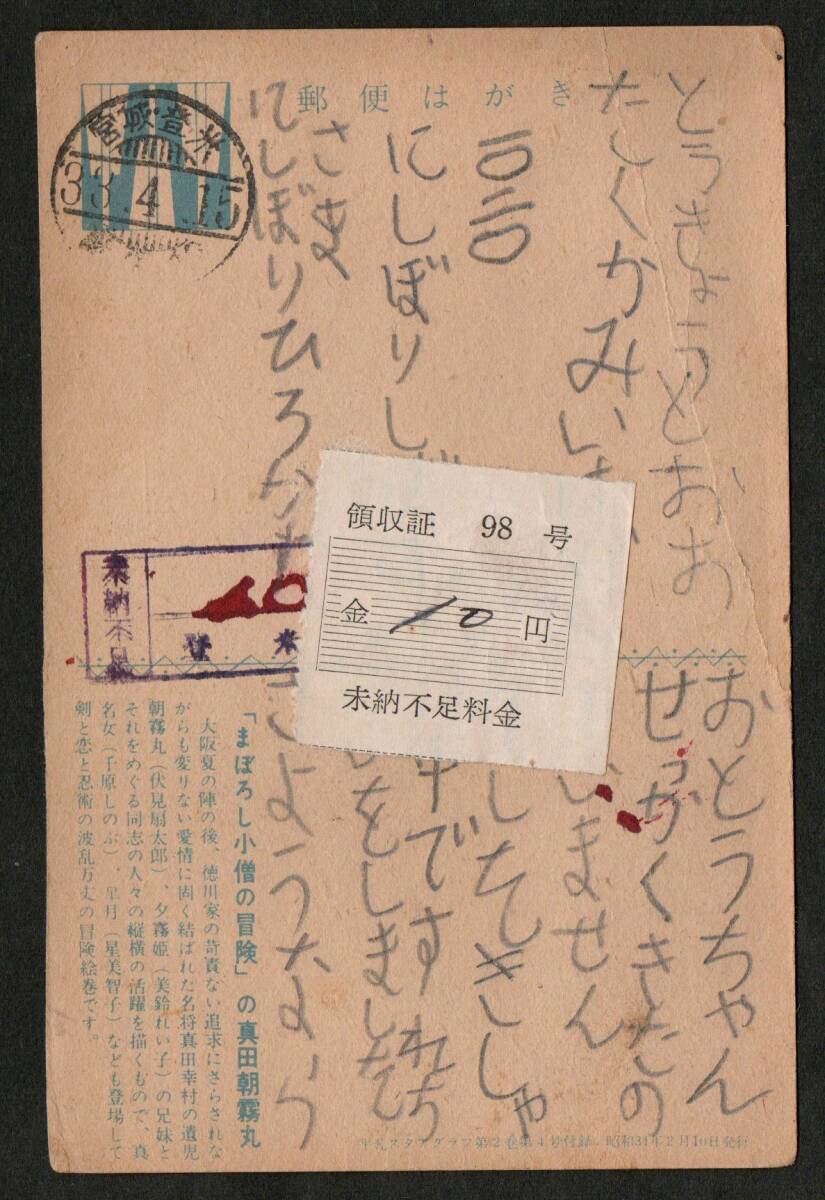 郵便はがき
宮城・登米
33.4.15
とうきょうとおお
たくかみい
一〇二〇
にしぼりし
さま
にしぼりひろか
未納不足
10
登米
領収証 98 号
金 10 円
未納不足料金
おとうちゃん
せっかくきたの
いません
したきしゃ
中です れち
をしました
さようなら
「まぼろし小僧の冒険」の真田朝霧丸
大阪夏の陣の後、徳川家の苛責ない追求にさらされな
がらも変りない愛情に固く結ばれた名将真田幸村の遺児
朝霧丸(伏見扇太郎)、夕霧姫(美鈴れい子)の兄妹と
それをめぐる同志の人々の縦横の活躍を描くもので、真
名女(千原しのぶ)、皐月(星美智子)なども登場して
剣と恋と忍術の波乱万丈の冒険絵巻です。
平凡スタアグラフ第2巻第4号付録 昭和31年2月10日発行